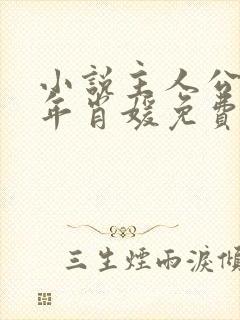 小説主人公
年肖媛免費
三生煙雨淚傾